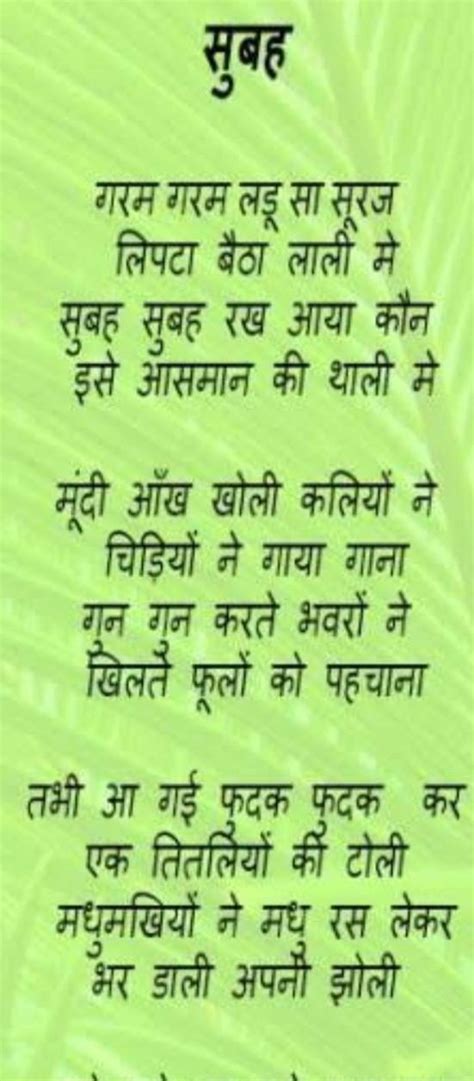 सुबह
गरम गरम लडू सा सूरज
लिपटा बैठा लाली मे
सुबह सुबह रख आया कौन
इसे आसमान की थाली मे
मूंदी आँख खोली कलियों ने
चिड़ियों ने गाया गाना
गुन गुन करते भवरों ने
खिलते फूलों को पहचाना
तभी आ गई फुदक फुदक कर
एक तितलियों की टोली
मधुमखियों ने मधु रस लेकर
भर डाली अपनी झोली